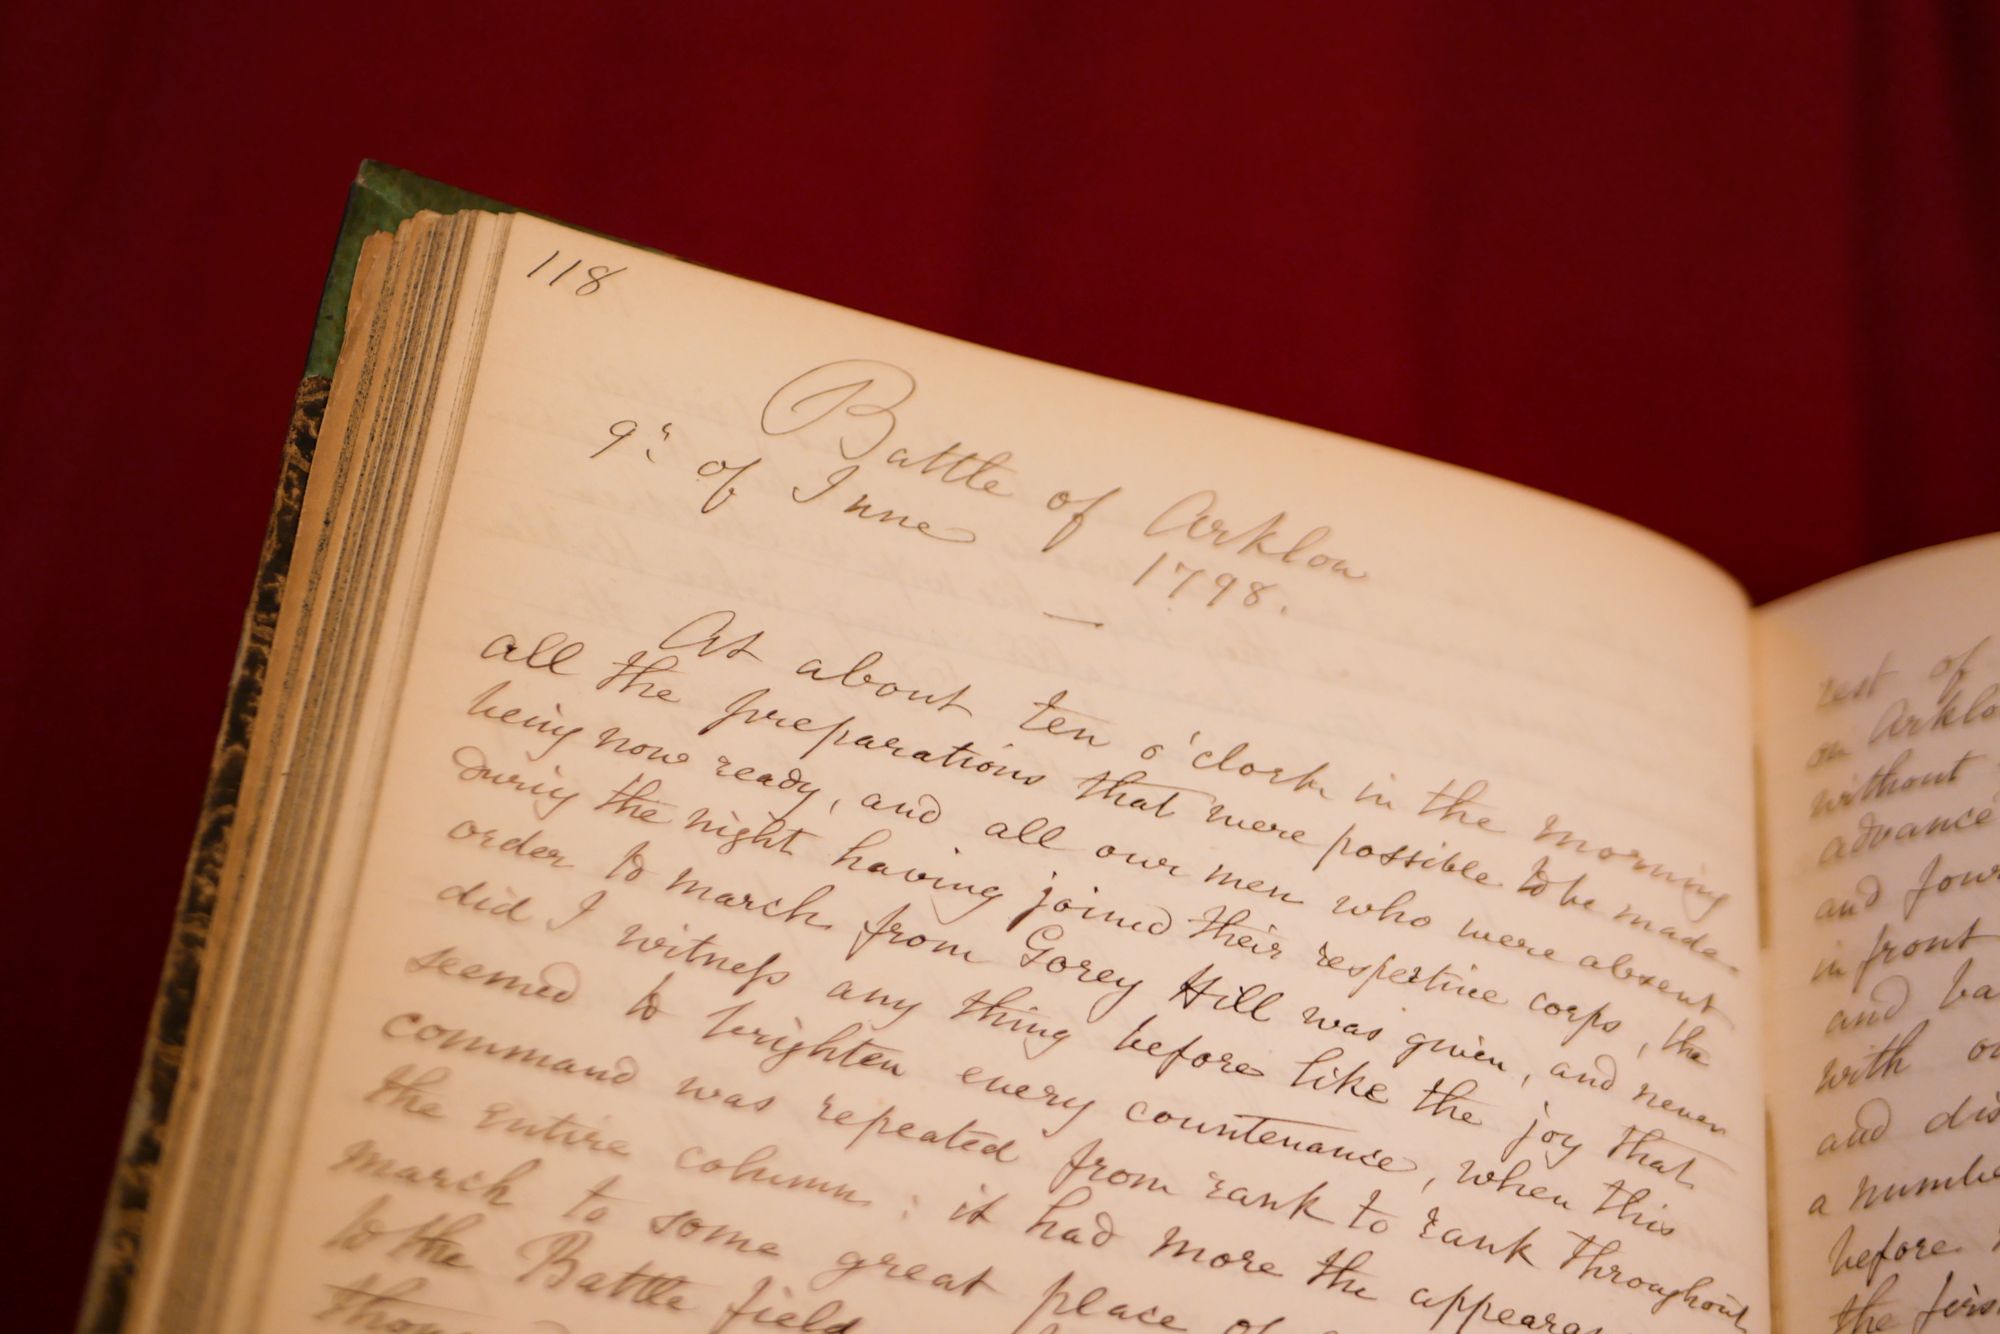 118
Battle of Arklow
9th of June 1798.
At about ten o'clock in the morning
all the preparations that were possible to be made
being now ready, and all our men who were absent
during the night having joined their respective corps, the
order to march from Gorey Hill was given, and never
did I witness any thing before like the joy that
seemed to brighten every countenance, when this
command was repeated from rank to rank throughout
the entire column; it had more the
march to some great place of
to the Battle field
rest of
on
without
advance
and
in front
and
with
and
a
before
the